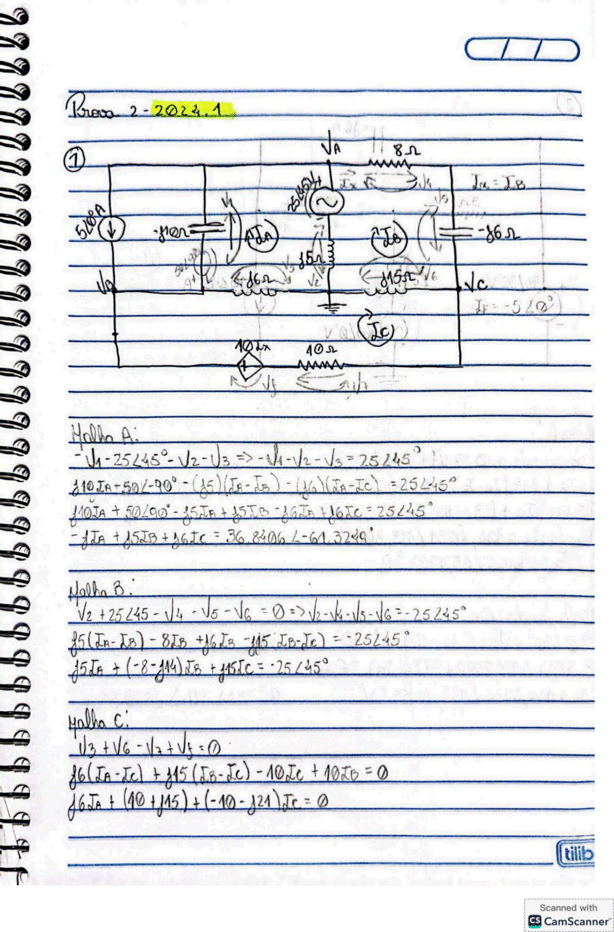 Prova 2 - 2024.1
1
VA
8Ω
5∠0°A
-j10Ω
25∠45°V
Ix
V4
Ix = IB
V1
IA
IB
V5
-j6Ω
j5Ω
V2
j6Ω
V3
j15Ω
V6
VB
VC
IF = -5∠0°
IC
10Ix
10Ω
Vf
V7
Malha A:
-V1-25∠45°-V2-V3 => -V1-V2-V3 = 25∠45°
j10IA-50∠-90°-(j5)(IA-IB)-(j6)(IA-IC) = 25∠45°
j10IA+50∠90°-j5IA+j5IB-j6IA+j6IC = 25∠45°
-jIA+j5IB+j6IC = 36,8406∠-61,3249°
Malha B:
V2+25∠45-V4-V5-V6 = 0 => V2-V4-V5-V6 = -25∠45°
j5(IA-IB)-8IB+j6IB-j15(IB-IC) = -25∠45°
j5IA+(-8-j14)IB+j15IC = -25∠45°
Malha C:
V3+V6-V7+Vf = 0
j6(IA-IC)+j15(IB-IC)-10IC+10IB = 0
j6IA+(10+j15)+(-10-j21)IC = 0
tilib
Scanned with
CS CamScanner